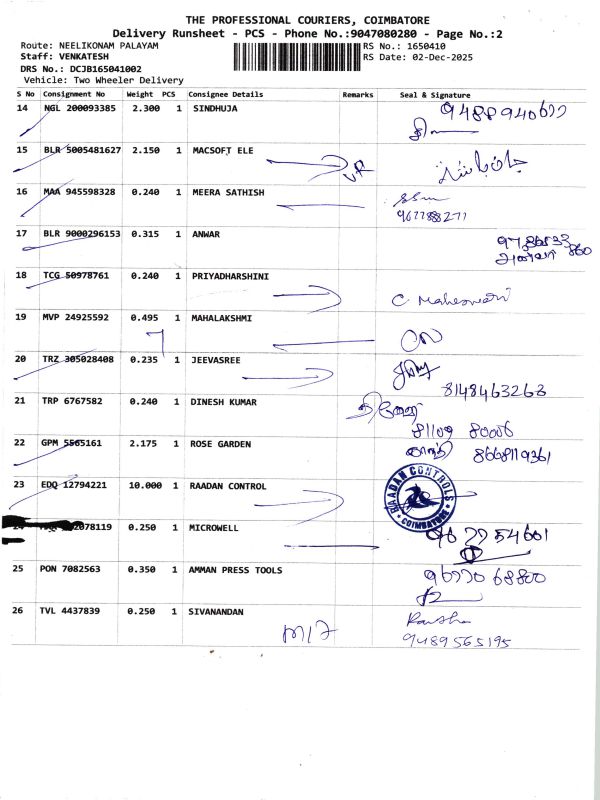 THE PROFESSIONAL COURIERS, COIMBATORE
Delivery Runsheet - PCS - Phone No.:9047080280 - Page No.:2
Route: NEELIKONAM PALAYAM RS No.: 1650410
Staff: VENKATESH RS Date: 02-Dec-2025
DRS No.: DCJB165041002
Vehicle: Two Wheeler Delivery
S No Consignment No Weight PCS Consignee Details Remarks Seal & Signature
14 NGL 200093385 2.300 1 SINDHUJA
15 BLR 5005481627 2.150 1 MACSOFT ELE
16 MAA 945598328 0.240 1 MEERA SATHISH
9677888277
17 BLR 9000296153 0.315 1 ANWAR
அன்வர்
18 TCG 50978761 0.240 1 PRIYADHARSHINI
C Maheswari
19 MVP 24925592 0.495 1 MAHALAKSHMI
20 TRZ 305028408 0.235 1 JEEVASREE
8148463263
21 TRP 6767582 0.240 1 DINESH KUMAR
22 GPM 5565161 2.175 1 ROSE GARDEN
8668119361
23 EDQ 12794221 10.000 1 RAADAN CONTROL
RAADAN CONTROLS
COIMBATORE
078119 0.250 1 MICROWELL
25 PON 7082563 0.350 1 AMMAN PRESS TOOLS
26 TVL 4437839 0.250 1 SIVANANDAN
9489565195